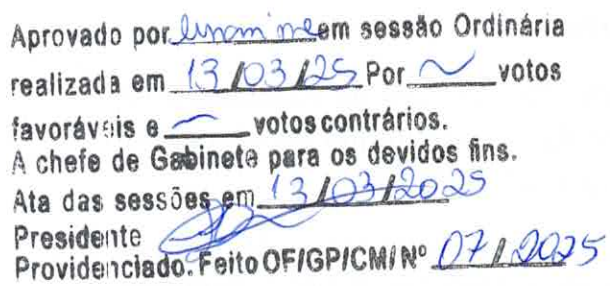 Aprovado por unanime em sessão Ordinária
realizada em 13/03/25 Por ~ votos
favoráveis e ~ votos contrários.
A chefe de Gabinete para os devidos fins.
Ata das sessões em 13/03/2025
Presidente
Providenciado. Feito OF/GP/CMI Nº 07/2025